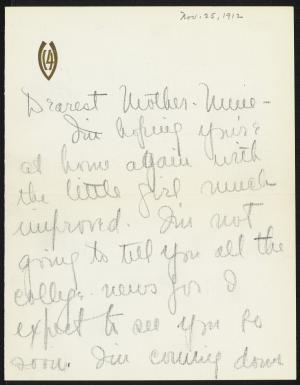 Nov. 25, 1912
Dearest Mother-Mine-
I'm hoping you're
at home again with
the little girl much
improved. I'm not
going to tell you all the
college news for I
expect to see you so
soon. I'm coming down